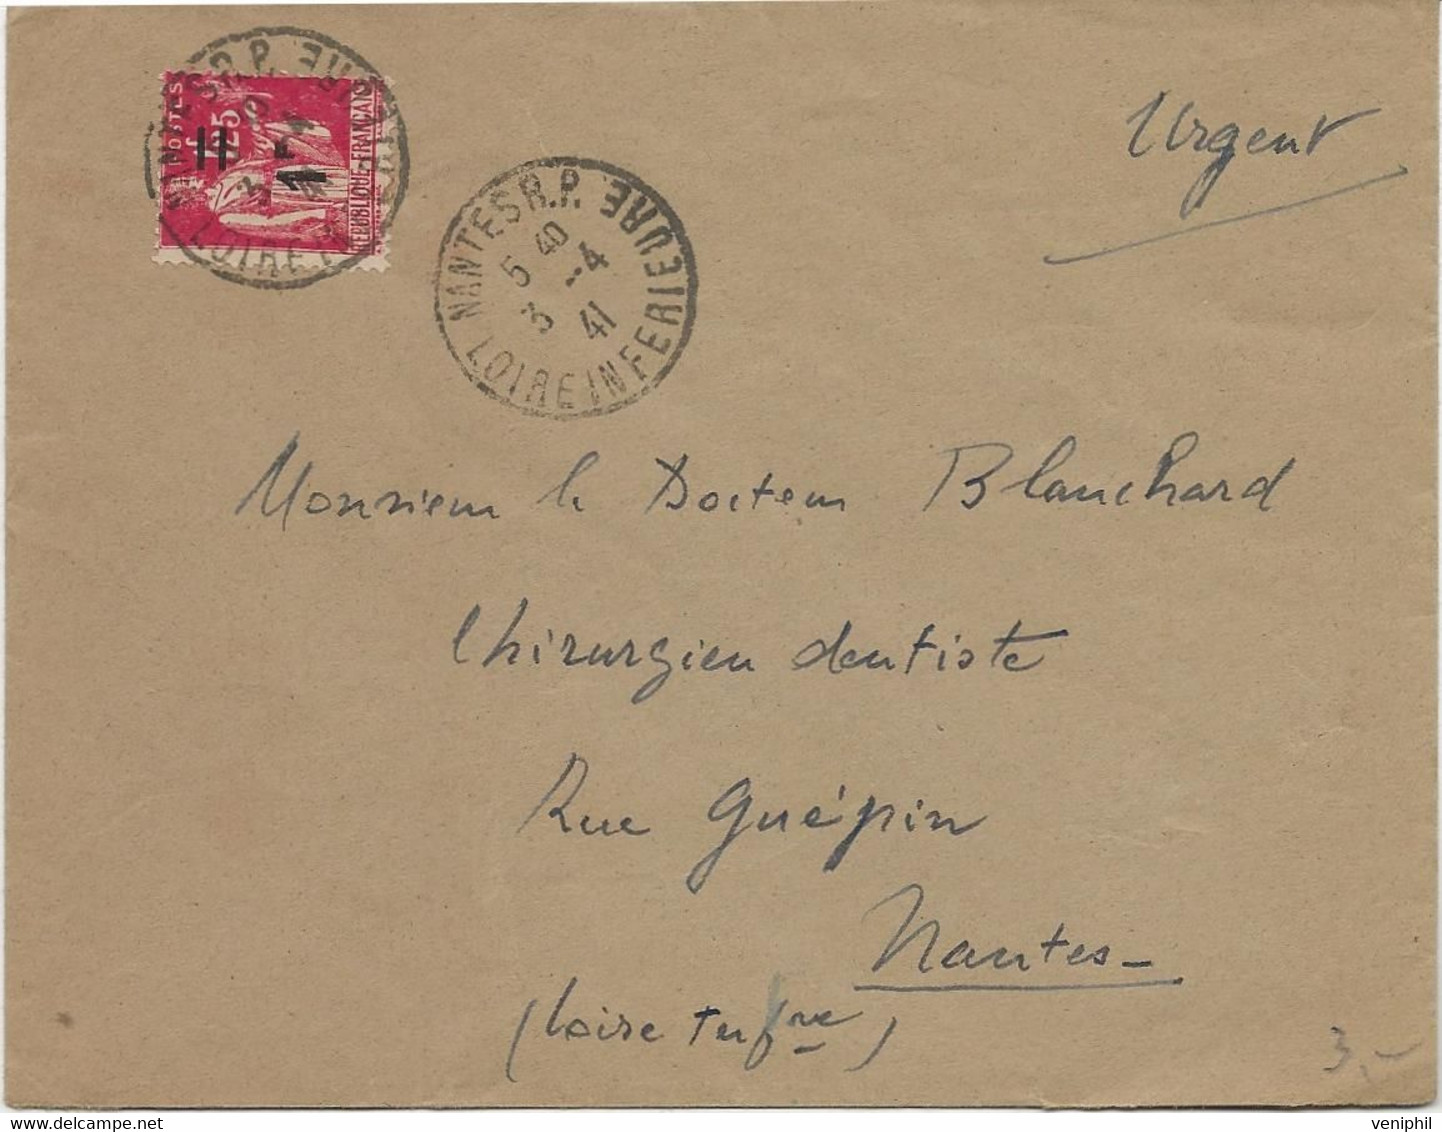 Urgent
POSTES
1f25
1F
REPUBLIQUE FRANÇAISE
NANTES R.P.
LOIRE INFERIEURE
NANTES R.P.
5 40
3 -4
41
LOIRE INFERIEURE
Monsieur le Docteur Blanchard
Chirurgien dentiste
Rue Guépin
Nantes-
(Loire Infre)
3,-
veniphil